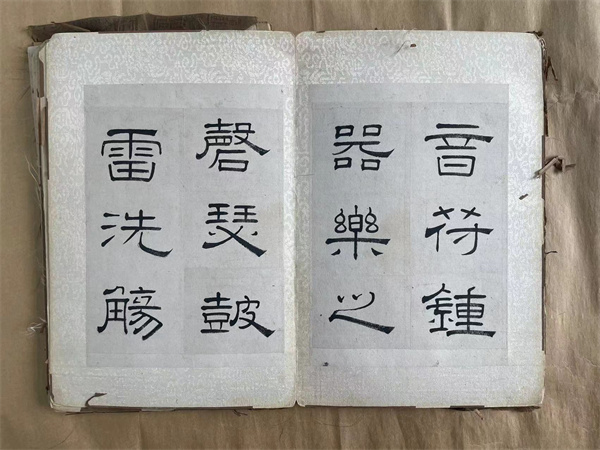 音符鍾
器樂之
磬瑟皷
雷洗觴